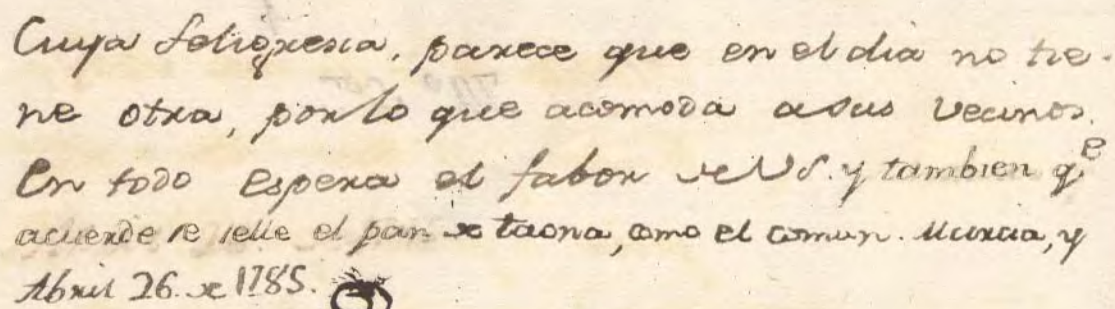 Cuya feligresia, parece que en el dia no tie-
ne otra, por lo que acomoda a sus vecinos.
En todo espera el fabor de V.S. y tambien q.e
acuerde se selle el pan de taona, como el comun. Murcia, y
Abril 26. de 1785.